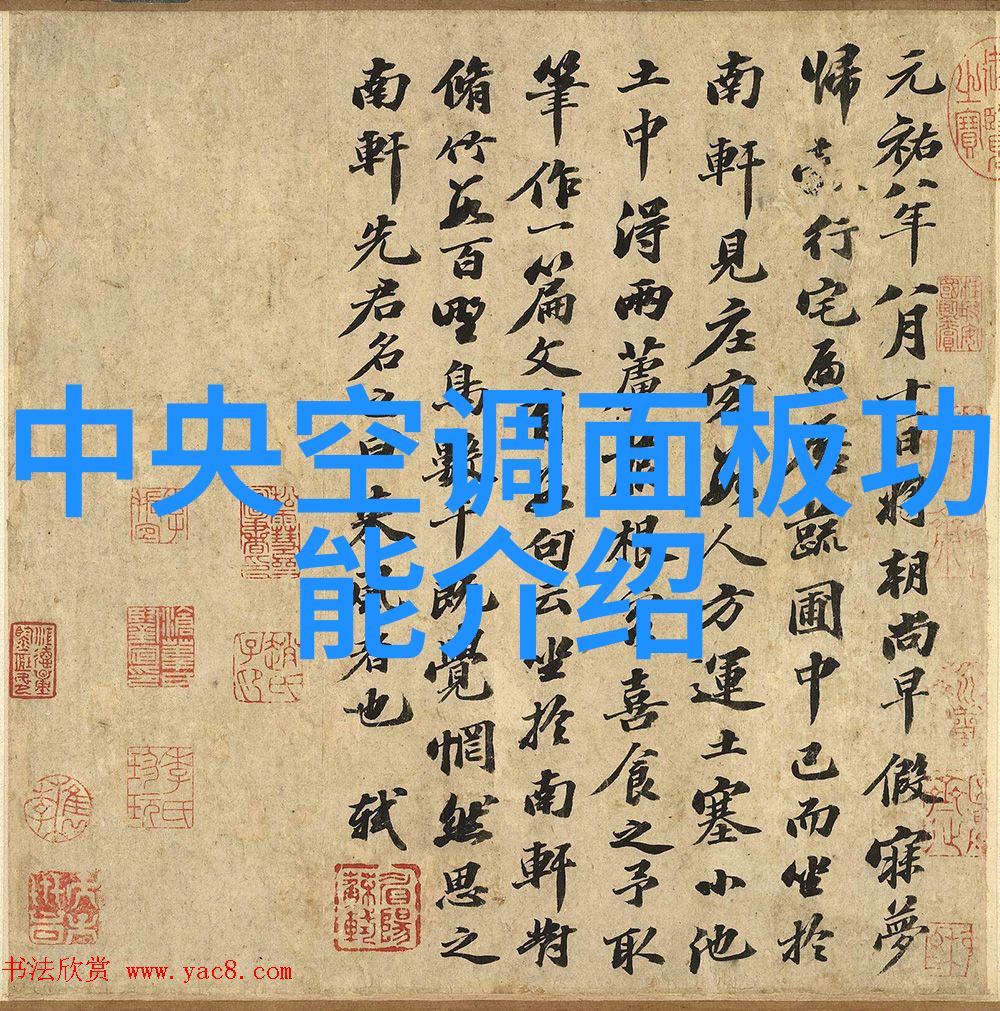 中央空调面板功
能介绍
元祐八年八月十一日將朝尚早假寐夢
歸行宅遍歷蔬圃中已而坐於
南軒見莊客數人方運土塞小池
土中得兩蘆菔根客喜食之予取
筆作一篇文有數句云坐於南軒對
脩竹數百野鳥數千既覺惘然思之
南軒先君名之曰來風者也 軾
书法欣赏 www.yac8.com